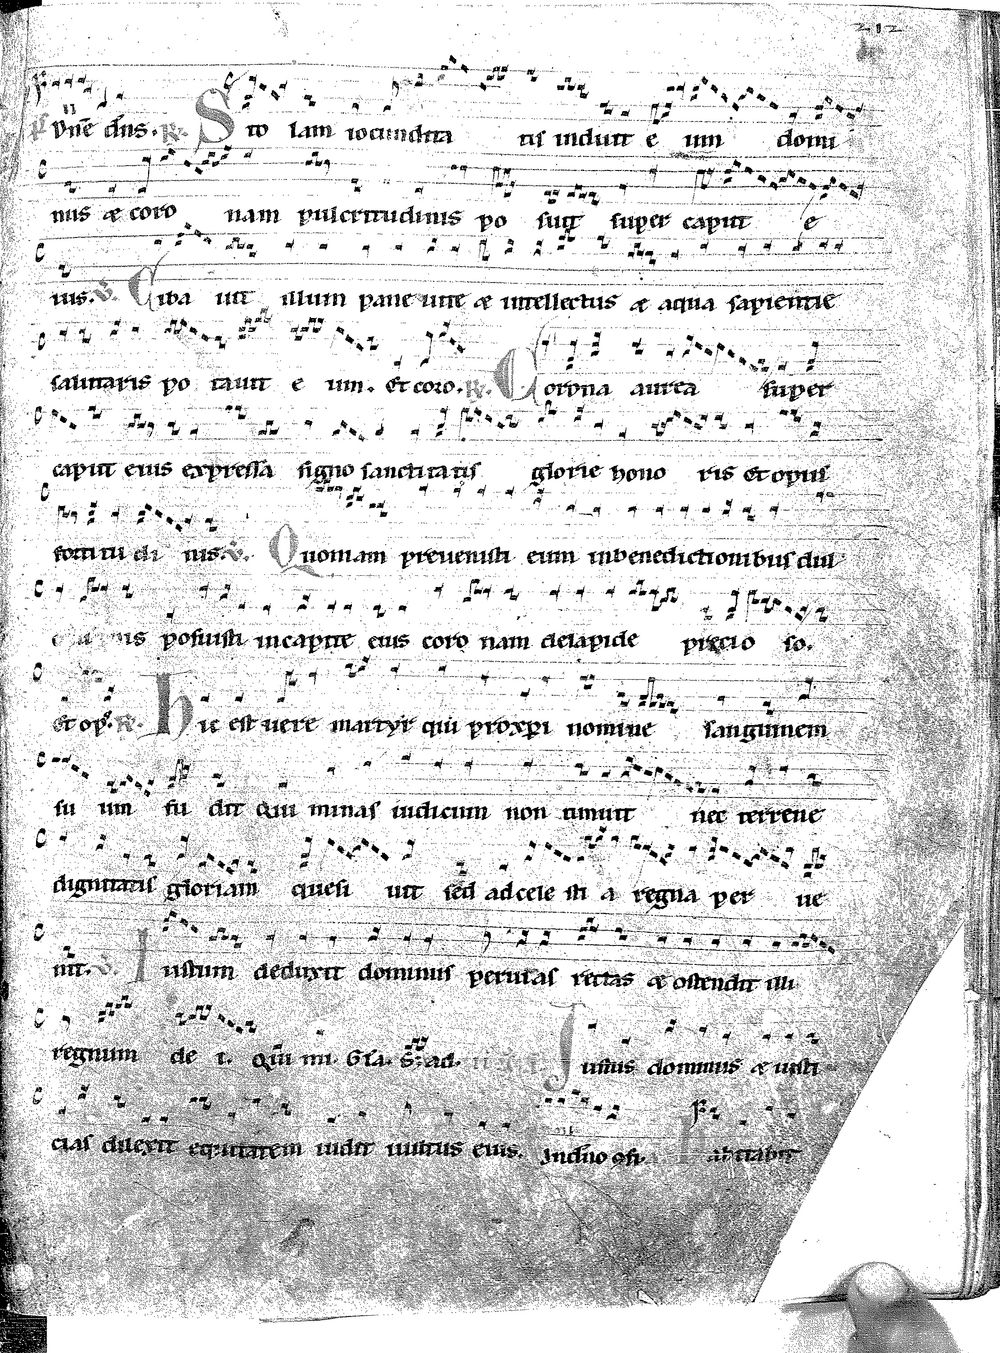 212
Dn̄e dn̄s. R. Sto lam iocundita tis induit e um domi
nus æ coro nam pulcritudinis po suit super caput e
ius. V. Ciba uit illum pane uite æ intellectus æ aqua sapientie
salutaris po tauit e um. Et coro. R. Corona aurea super
caput eius expressa signo sanctitatis glorie hono ris Et opus
fortitu di nis. V. Quoniam preuenisti eum inbenedictionibus dul
nis posuisti incapite eius coro nam delapide precio so.
Et op̄. R. Hic est uere martyr qui proxp̄i nomine sanguinem
su um fu dit Qui minas iudicum non timuit nec terrene
dignitatis gloriam quesi uit sed adcele sti a regna per ue
nit. V. Iustum deduxit dominus peruias rectas æ ostendit illi
regnum de i. Qui mi. Gła. ad. Iustus dominus æ iusti
cias dilexit equitatem uidit uultus eius. abitabit